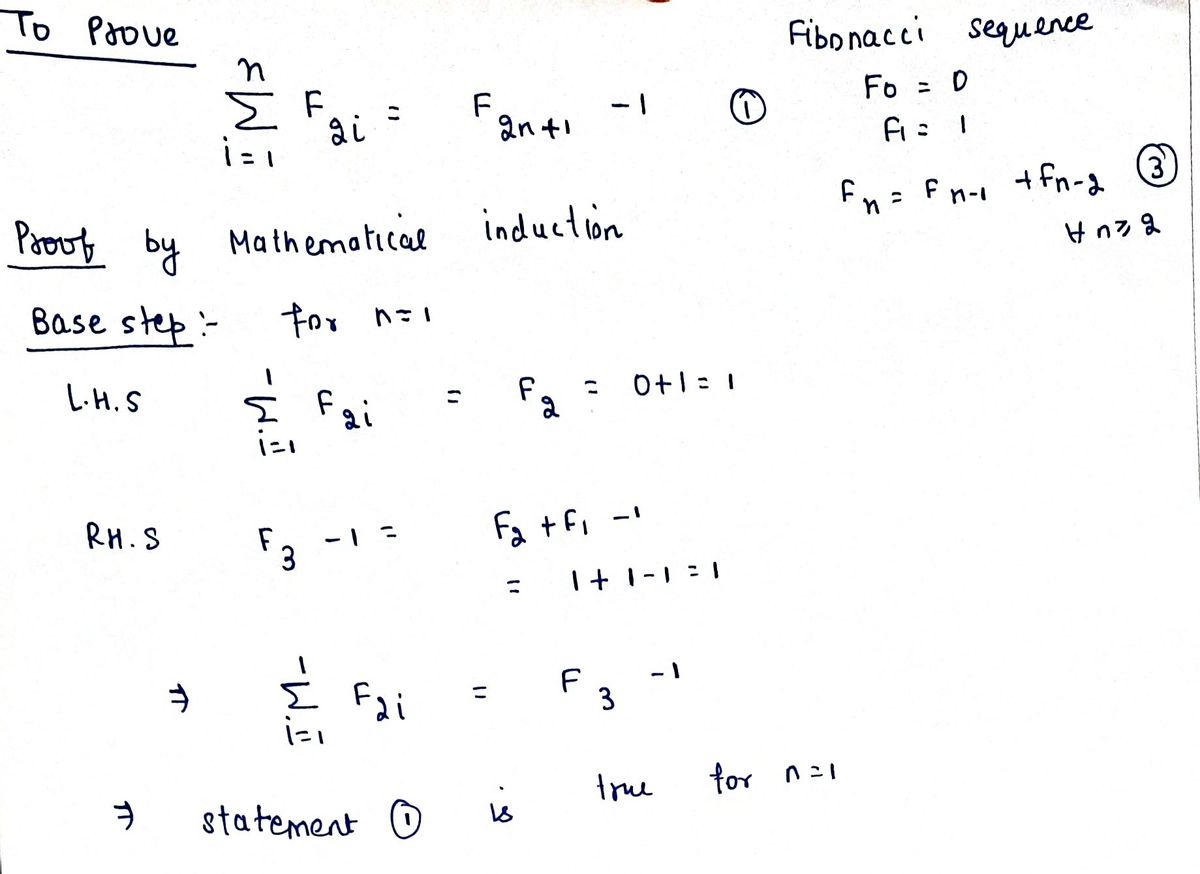 To Prove
Fibonacci sequence
n
∑ F₂ᵢ = F₂ₙ₊₁ - 1 ①
i = 1
F₀ = 0
F₁ = 1
Fₙ = Fₙ₋₁ + Fₙ₋₂ ③
∀ n ≥ 2
Proof by Mathematical induction
Base step :- for n = 1
L.H.S ∑ᵢ₌₁¹ F₂ᵢ = F₂ = 0+1 = 1
R.H.S F₃ - 1 = F₂ + F₁ - 1
= 1 + 1 - 1 = 1
⇒ ∑ᵢ₌₁¹ F₂ᵢ = F₃ - 1
⇒ statement ① is true for n = 1